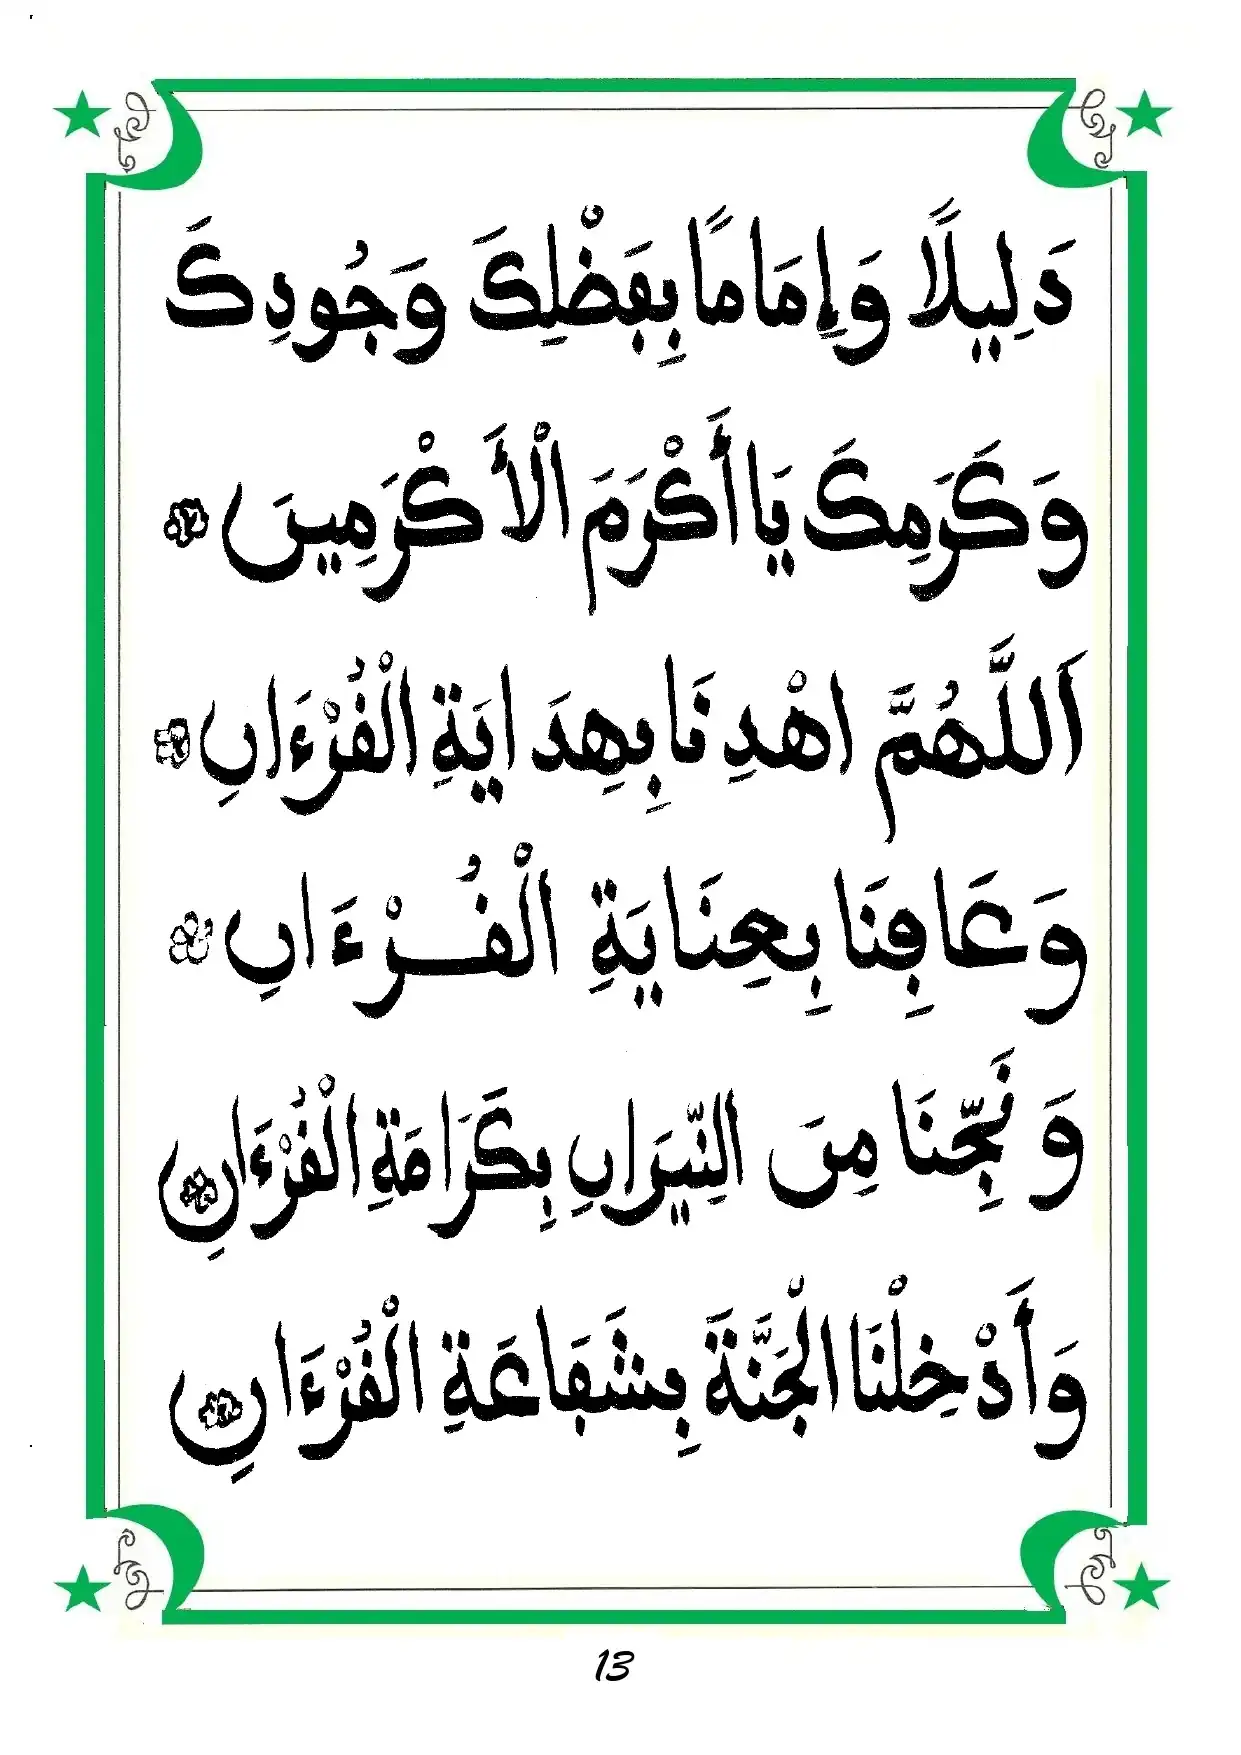 دَلِيلًا وَإِمَامًا بِفَضْلِكَ وَجُودِكَ
وَكَرَمِكَ يَا أَكْرَمَ الْأَكْرَمِينَ
اَللَّهُمَّ اهْدِنَا بِهِدَايَةِ الْقُرْءَانِ
وَعَافِنَا بِعِنَايَةِ الْقُرْءَانِ
وَنَجِّنَا مِنَ النِّيرَانِ بِكَرَامَةِ الْقُرْءَانِ
وَأَدْخِلْنَا الْجَنَّةَ بِشَفَاعَةِ الْقُرْءَانِ
13